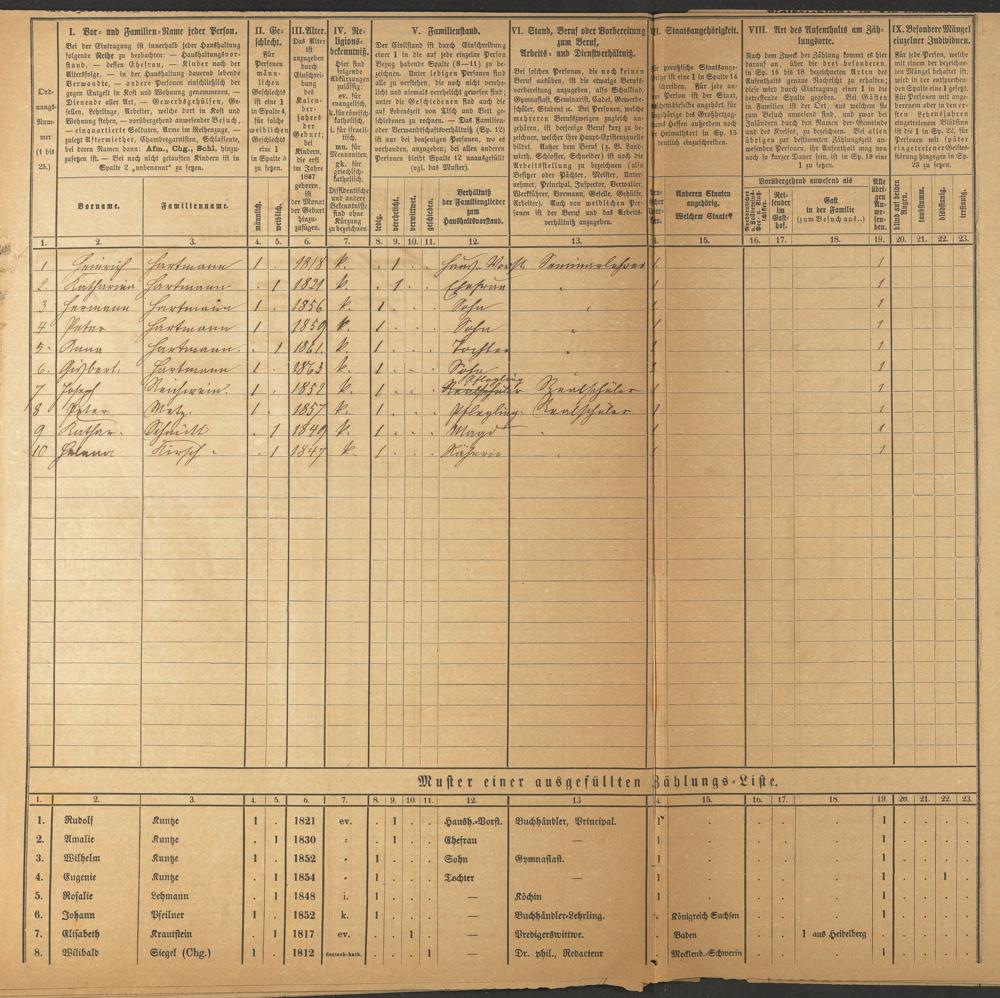 I. Vor- und Familien-Name jeder Person.
Bei der Eintragung ist innerhalb jeder Haushaltung
folgende Reihe zu beobachten: — Haushaltungsvor-
stand, — dessen Ehefrau, — Kinder nach der
Altersfolge, — in der Haushaltung dauernd lebende
Verwandte, — andere Personen einschließlich der
gegen Entgelt in Kost und Wohnung genommenen, —
Dienende aller Art, — Gewerbsgehülfen, Ge-
sellen, Lehrlinge, Arbeiter, welche dort in Kost und
Wohnung stehen, — vorübergehend anwesender Besuch,
— einquartierte Soldaten, Arme in Reihenzuge, —
zuletzt Aftermiether, Chambregarnisten, Schlafleute,
bei deren Namen dann: Afm., Chg., Schl. hinzu-
zusetzen ist. — Bei noch nicht getauften Kindern ist in
Spalte 2 „unbenannt" zu setzen.
Ord-
nungs-
Num-
mer
(1 bis
25.)
Vorname.
Familienname.
II. Ge-
schlecht.
Für
Personen
männ-
lichen
Geschlechts
ist eine 1
in Spalte 4
für solche
weiblichen
Geschlechts
eine 1
in Spalte 5
zu setzen.
männlich.
weiblich.
III. Alter.
Das Alter
ist
anzugeben
durch
Einschrei-
bung
des
Kalen-
der-
jahres
der
Geburt;
bei
Kindern,
die erst
im Jahre
1867
geboren,
ist
der Monat
der Geburt
hinzu-
zufügen.
IV. Re-
ligions-
bekenntniß.
Hier sind
folgende
Abkürzungen
zulässig:
ev. für
evangelisch,
k. für römisch-
katholisch,
i. für israeli-
tisch,
mn. für
Mennoniten,
gk. für
griechisch-
katholisch.
Dissidentische
und andere
Bekenntnisse
sind ohne
Kürzung
zu bezeichnen
V. Familienstand.
Der Civilstand ist durch Einschreibung
einer 1 in die auf jede einzelne Person
Bezug habende Spalte (8—11) zu be-
zeichnen. Unter ledigen Personen sind
alle zu verstehen, die noch nicht verehe-
licht und niemals verehelicht gewesen sind;
unter die Geschiedenen sind auch die
auf Lebenszeit von Tisch und Bett ge-
schiedenen zu rechnen. — Das Familien-
oder Verwandtschaftsverhältniß (Sp. 12)
ist nur bei denjenigen Personen, wo es
vorhanden, anzugeben; bei allen anderen
Personen bleibt Spalte 12 unausgefüllt
(vgl. das Muster).
ledig.
verehelicht.
verwittwet.
geschieden.
Verhältniß
der Familienglieder
zum
Haushaltsvorstand.
VI. Stand, Beruf oder Vorbereitung
zum Beruf,
Arbeits- und Dienstverhältniß.
Bei solchen Personen, die noch keinen
Beruf ausüben, ist die etwaige Berufs-
vorbereitung anzugeben, also Schulkind,
Gymnasiast, Seminarist, Cadet, Gewerbe-
schüler, Student u. Bei Personen, welche
mehreren Berufszweigen zugleich an-
gehören, ist derjenige Beruf kurz zu be-
zeichnen, welcher ihre Haupt-Existenzquelle
bildet. Außer dem Beruf (z. B. Land-
wirth, Schlosser, Schneider) ist noch die
Arbeitsstellung zu bezeichnen (also
Besitzer oder Pächter, Meister, Unter-
nehmer, Principal, Inspector, Verwalter,
Werkführer, Vormann, Geselle, Gehülfe,
Arbeiter). Auch von weiblichen Per-
sonen ist der Beruf und das Arbeits-
verhältniß anzugeben.
Staatsangehörigkeit.
Anderen Staaten
angehörig.
Welchem Staate?
VIII. Art des Aufenthalts am Zäh-
lungsorte.
Nach dem Zweck der Zählung kommt es hier
darauf an, über die drei besonderen
in Sp. 16 bis 18 bezeichneten Arten des
Aufenthalts genaue Nachricht zu erhalten;
diese wird durch Eintragung einer 1 in die
betreffende Spalte gegeben. Bei Gästen
in Familien ist der Ort, aus welchem sie
zum Besuch anwesend sind, und zwar bei
Inländern der Namen der Gemeinde
und des Kreises, zu bezeichnen. Bei allen
übrigen zur Stunde der Zählung an-
wesenden Personen, ihr Aufenthalt mag von
noch so kurzer Dauer sein, ist in Sp. 19 eine
1 zu setzen.
Vorübergehend anwesend als
Rei-
sender
im
Gast-
hof.
Gast
in der Familie
(zum Besuch aus..)
Alle
übri-
gen
An-
wesen-
den.
IX. Besondere Mängel
einzelner Individuen.
Für jede Person, welche
mit einem der bezeichne-
ten Mängel behaftet ist,
wird in der entsprechen-
den Spalte eine 1 gesetzt.
Für Personen mit ange-
borenem oder in den er-
sten Lebensjahren
eingetretenem Blödsinn
ist die 1 in Sp. 22, für
Personen mit später
eingetretener Geistes-
störung hingegen in Sp.
23 zu setzen.
blind auf beiden
Augen.
taubstumm.
blödsinnig.
irrsinnig.
1. 2. 3. 4. 5. 6. 7. 8. 9. 10. 11. 12. 13. 15. 16. 17. 18. 19. 20. 21. 22. 23.
1 Heinrich Hartmann 1 . 1818 k. . 1 . . Haush. Vorst. Seminarlehrer 1 1
2. Katharina Hartmann . 1 1821 k. . 1 . . Ehefrau 1 1
3 Hermann Hartmann 1 . 1856 k. 1 . . . Sohn 1 1
4 Peter Hartmann 1 . 1859 k. 1 . . . Sohn 1 1
5. Anna Hartmann . 1 1861. k. 1 . . . Tochter 1 1
6. Gisbert Hartmann 1 . 1863 k. 1 . . . Sohn 1 1
7 Joseph 1 . 1852 k. 1 . . . Pflegling Realschüler 1 1
8 Peter Metz 1 . 1857 k. 1 . . . Pflegling. Realschüler 1 1
9 Kathar. Schmidt . 1 1849 k. 1 . . . Magd 1 1
10 Helena Kirsch . 1 1847 k. 1 . . . Näherin 1 1
Muster einer ausgefüllten Zählungs-Liste.
1. 2. 3. 4. 5. 6. 7. 8. 9. 10. 11. 12. 13 4. 15. 16. 17. 18. 19. 20. 21. 22. 23.
1. Rudolf Kuntze 1 . 1821 ev. . 1 . . Haush.-Vorst. Buchhändler, Principal. 1 . . . . 1 . . . .
2. Amalie Kuntze . 1 1830 : . 1 . . Ehefrau — 1 . . . . 1 . . . .
3. Wilhelm Kuntze 1 . 1852 : 1 . . . Sohn Gymnasiast. 1 . . . . 1 . . . .
4. Eugenie Kuntze . 1 1854 : 1 . . . Tochter — 1 . . . . 1 . . 1 .
5. Rosalie Lehmann . 1 1848 i. 1 . . . — Köchin 1 . . . . 1 . . . .
6. Johann Pfeilner 1 . 1852 k. 1 . . . — Buchhändler-Lehrling. . Königreich Sachsen . . . 1 . . . .
7. Elisabeth Krautstein . 1 1817 ev. . . 1 . — Predigerswittwe. . Baden . . 1 aus Heidelberg . . . . .
8. Wilibald Siegel (Chg.) 1 . 1812 deutsch-kath. . . . 1 — Dr. phil., Redacteur . Mecklenb.-Schwerin . . . 1 . . . .